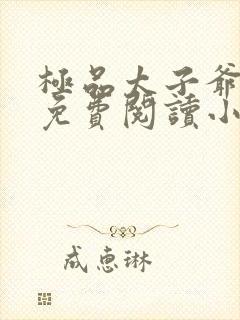 極品太子爺
免費閱讀小
成惠琳